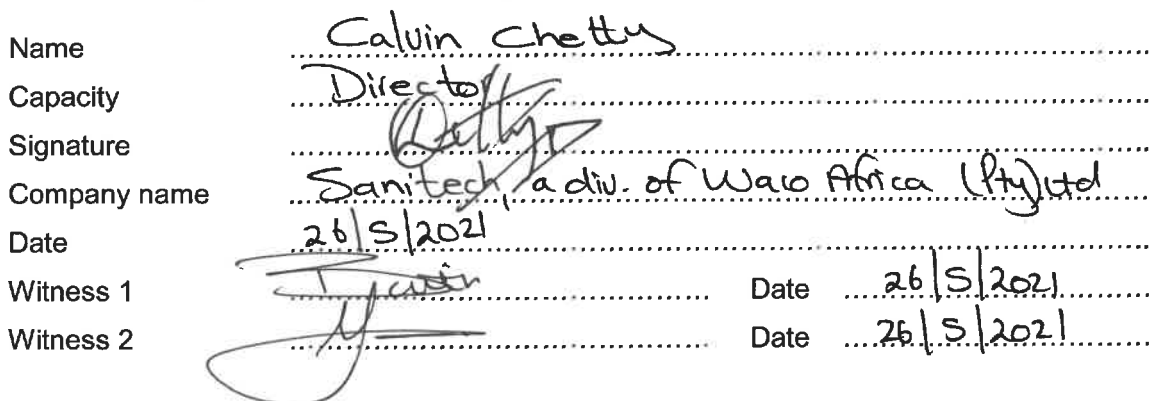 Name Calvin Chetty
Capacity Director
Signature
Company name Sanitech, a div. of Waco Africa (Pty) Ltd
Date 26/5/2021
Witness 1 Date 26/5/2021
Witness 2 Date 26/5/2021